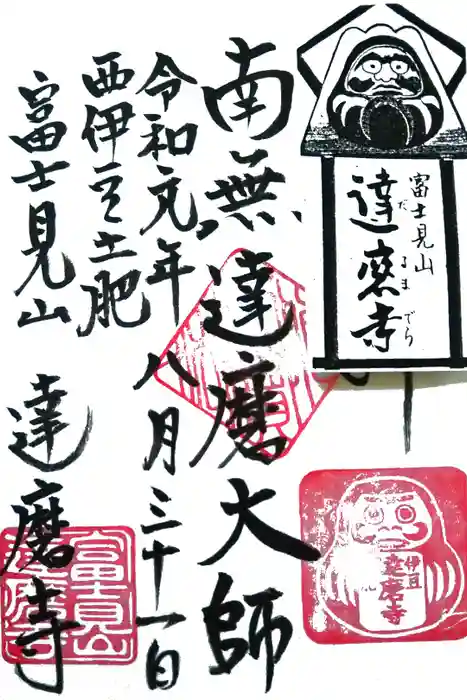 富士見山
達磨寺
だるまでら
南無達磨大師
令和元年八月三十一日
西伊豆土肥
富士見山
達磨寺
伊豆
達磨寺
富士見山
達磨寺